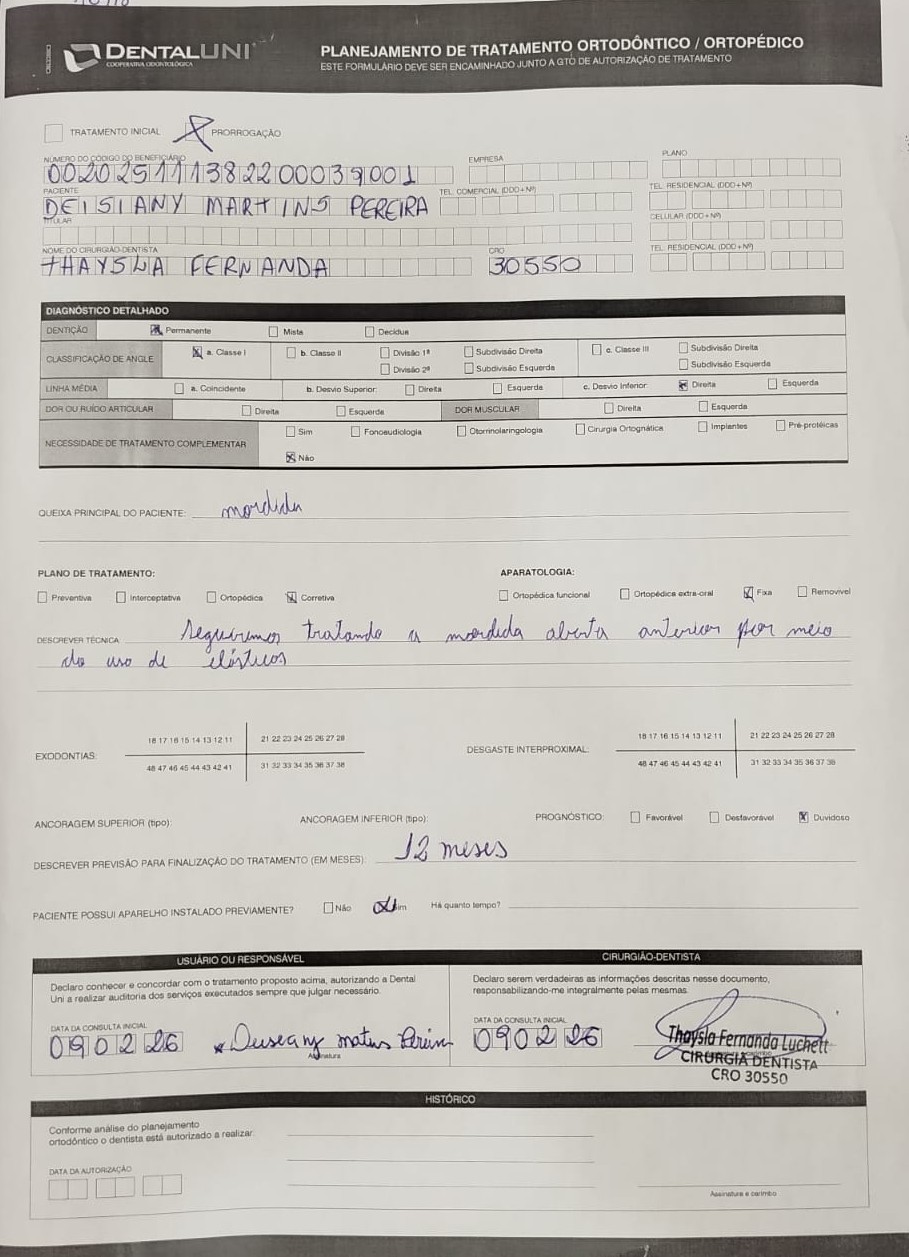 DENTALUNI
COOPERATIVA ODONTOLÓGICA
PLANEJAMENTO DE TRATAMENTO ORTODÔNTICO / ORTOPÉDICO
ESTE FORMULÁRIO DEVE SER ENCAMINHADO JUNTO A GTO DE AUTORIZAÇÃO DE TRATAMENTO
TRATAMENTO INICIAL PRORROGAÇÃO
NÚMERO DO CÓDIGO DO BENEFICIÁRIO EMPRESA PLANO
002025111382200039001
PACIENTE TEL. COMERCIAL (DDD + Nº) TEL. RESIDENCIAL (DDD + Nº)
DEISIANY MARTINS PEREIRA
TITULAR CELULAR (DDD + Nº)
NOME DO CIRURGIÃO-DENTISTA CRO TEL. RESIDENCIAL (DDD + Nº)
THAYSLA FERNANDA 30550
DIAGNÓSTICO DETALHADO
DENTIÇÃO Permanente Mista Decídua
CLASSIFICAÇÃO DE ANGLE a. Classe I b. Classe II Divisão 1ª Subdivisão Direita c. Classe III Subdivisão Direita
Divisão 2ª Subdivisão Esquerda Subdivisão Esquerda
LINHA MÉDIA a. Coincidente b. Desvio Superior: Direita Esquerda c. Desvio Inferior: Direita Esquerda
DOR OU RUÍDO ARTICULAR Direita Esquerda DOR MUSCULAR Direita Esquerda
NECESSIDADE DE TRATAMENTO COMPLEMENTAR Sim Fonoaudiologia Otorrinolaringologia Cirurgia Ortognática Implantes Pré-protéticas
Não
QUEIXA PRINCIPAL DO PACIENTE: mordida
PLANO DE TRATAMENTO: APARATOLOGIA:
Preventiva Interceptativa Ortopédica Corretiva Ortopédica funcional Ortopédica extra-oral Fixa Removível
DESCREVER TÉCNICA Seguiremos tratando a mordida aberta anterior por meio
do uso de elásticos
18 17 16 15 14 13 12 11 21 22 23 24 25 26 27 28 18 17 16 15 14 13 12 11 21 22 23 24 25 26 27 28
EXODONTIAS: DESGASTE INTERPROXIMAL:
48 47 46 45 44 43 42 41 31 32 33 34 35 36 37 38 48 47 46 45 44 43 42 41 31 32 33 34 35 36 37 38
ANCORAGEM SUPERIOR (tipo): ANCORAGEM INFERIOR (tipo): PROGNÓSTICO: Favorável Desfavorável Duvidoso
DESCREVER PREVISÃO PARA FINALIZAÇÃO DO TRATAMENTO (EM MESES): 12 meses
PACIENTE POSSUI APARELHO INSTALADO PREVIAMENTE? Não Sim Há quanto tempo?
USUÁRIO OU RESPONSÁVEL CIRURGIÃO-DENTISTA
Declaro conhecer e concordar com o tratamento proposto acima, autorizando a Dental
Uni a realizar auditoria dos serviços executados sempre que julgar necessário.
Declaro serem verdadeiras as informações descritas nesse documento,
responsabilizando-me integralmente pelas mesmas.
DATA DA CONSULTA INICIAL DATA DA CONSULTA INICIAL
090226 090226
Assinatura
Thaysla Fernanda Luchett
CIRURGIÃ DENTISTA
CRO 30550
HISTÓRICO
Conforme análise do planejamento
ortodôntico o dentista está autorizado a realizar:
DATA DA AUTORIZAÇÃO
Assinatura e carimbo